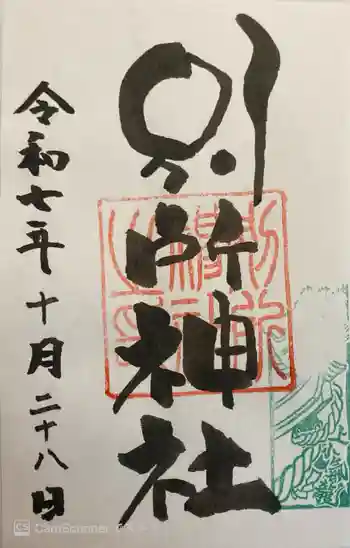 別所神社
令和七年十月二十八日
CS CamScanner